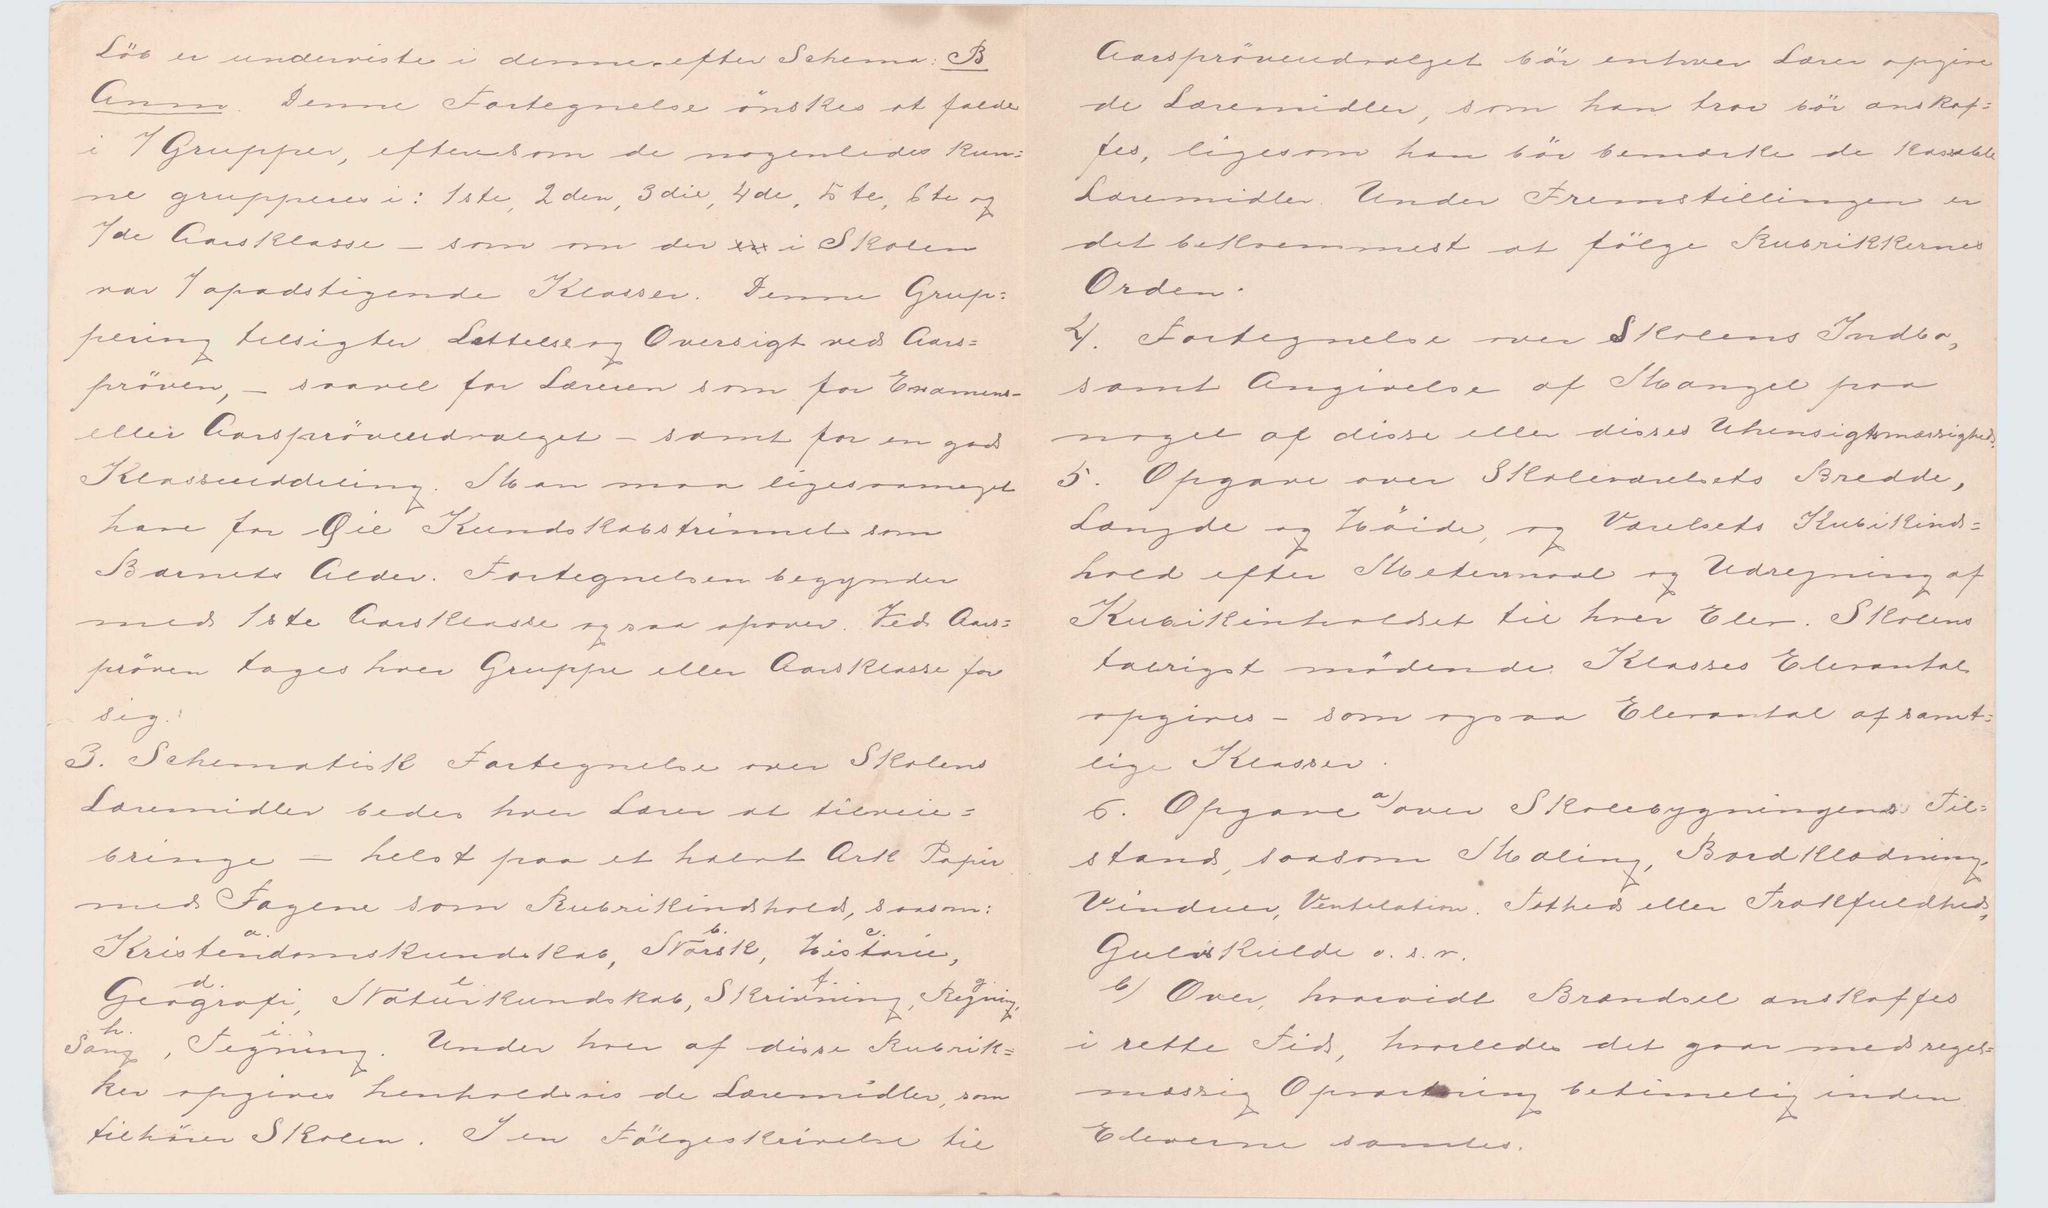 Löb er underviste i denne efter Schema: B
Anm. Denne Fortegnelse önskes at falde
i 7 Grupper, eftersom de nogenledes kun=
ne grupperes i: 1ste, 2den, 3die, 4de, 5te, 6te og
7de Aarsklasse – som om der i Skolen
var 7 opadstigende Klasser. Denne Grup=
pering tilsigter Lettelse og Oversigt ved Aars=
pröven, – saavel for Læreren som for Examens-
eller Aarspröveudvalget – samt for en god
Klasseinddeling. Man maa ligesaameget
have for Øie Kundskabstrinnet som
Barnets Alder. Fortegnelsen begynder
med 1ste Aarsklasse og saa opover. Ved Aars=
pröven tages hver Gruppe eller Aarsklasse for
sig.
3. Schematisk Fortegnelse over Skolens
Læremidler bedes hver Lærer at tilveie=
bringe – helst paa et halvt Ark Papir
med Fagene som Rubrikindhold, saasom:
a. Kristendomskundskab, b. Norsk, c. Historie,
d. Geografi, e. Naturkundskab, f. Skrivning, g. Regning,
h. Sang, i. Tegning. Under hver af disse Rubrik=
ker opgives henholdsvis de Læremidler, som
tilhörer Skolen. I en Fölgeskrivelse til
Aarspröveudvalget bör enhver Lærer opgive
de Læremidler, som han tror bör anskaf=
fes, ligesom han bör bemærke de kassable
Læremidler. Under Fremstillingen er
det bekvemmest at fölge Rubrikkernes
Orden.
4. Fortegnelse over Skolens Indbo,
samt Angivelse af Mangel paa
noget af disse eller disses Uhensigtsmæssighed.
5. Opgave over Skoleværelsets Bredde,
Længde og Höide, og Værelsets Kubikind=
hold efter Metermaal og Udregning af
Kubikinholdet til hver Elev. Skolens
talrigst mödende Klasses Elevantal
opgives – som ogsaa Elevantal af samt=
lige Klasser.
6. Opgave a) over Skolebygningens Til=
stand, saasom Maling, Bordklædning,
Vinduer, Ventilation. Tæthed eller Trækfuldhed,
Gulvkulde o. s. v.
b) Over, hvorvidt Brændsel anskaffes
i rette Tid, hvorledes det gaar med regel=
mæssig Opvartning betimelig inden
Eleverne samles.